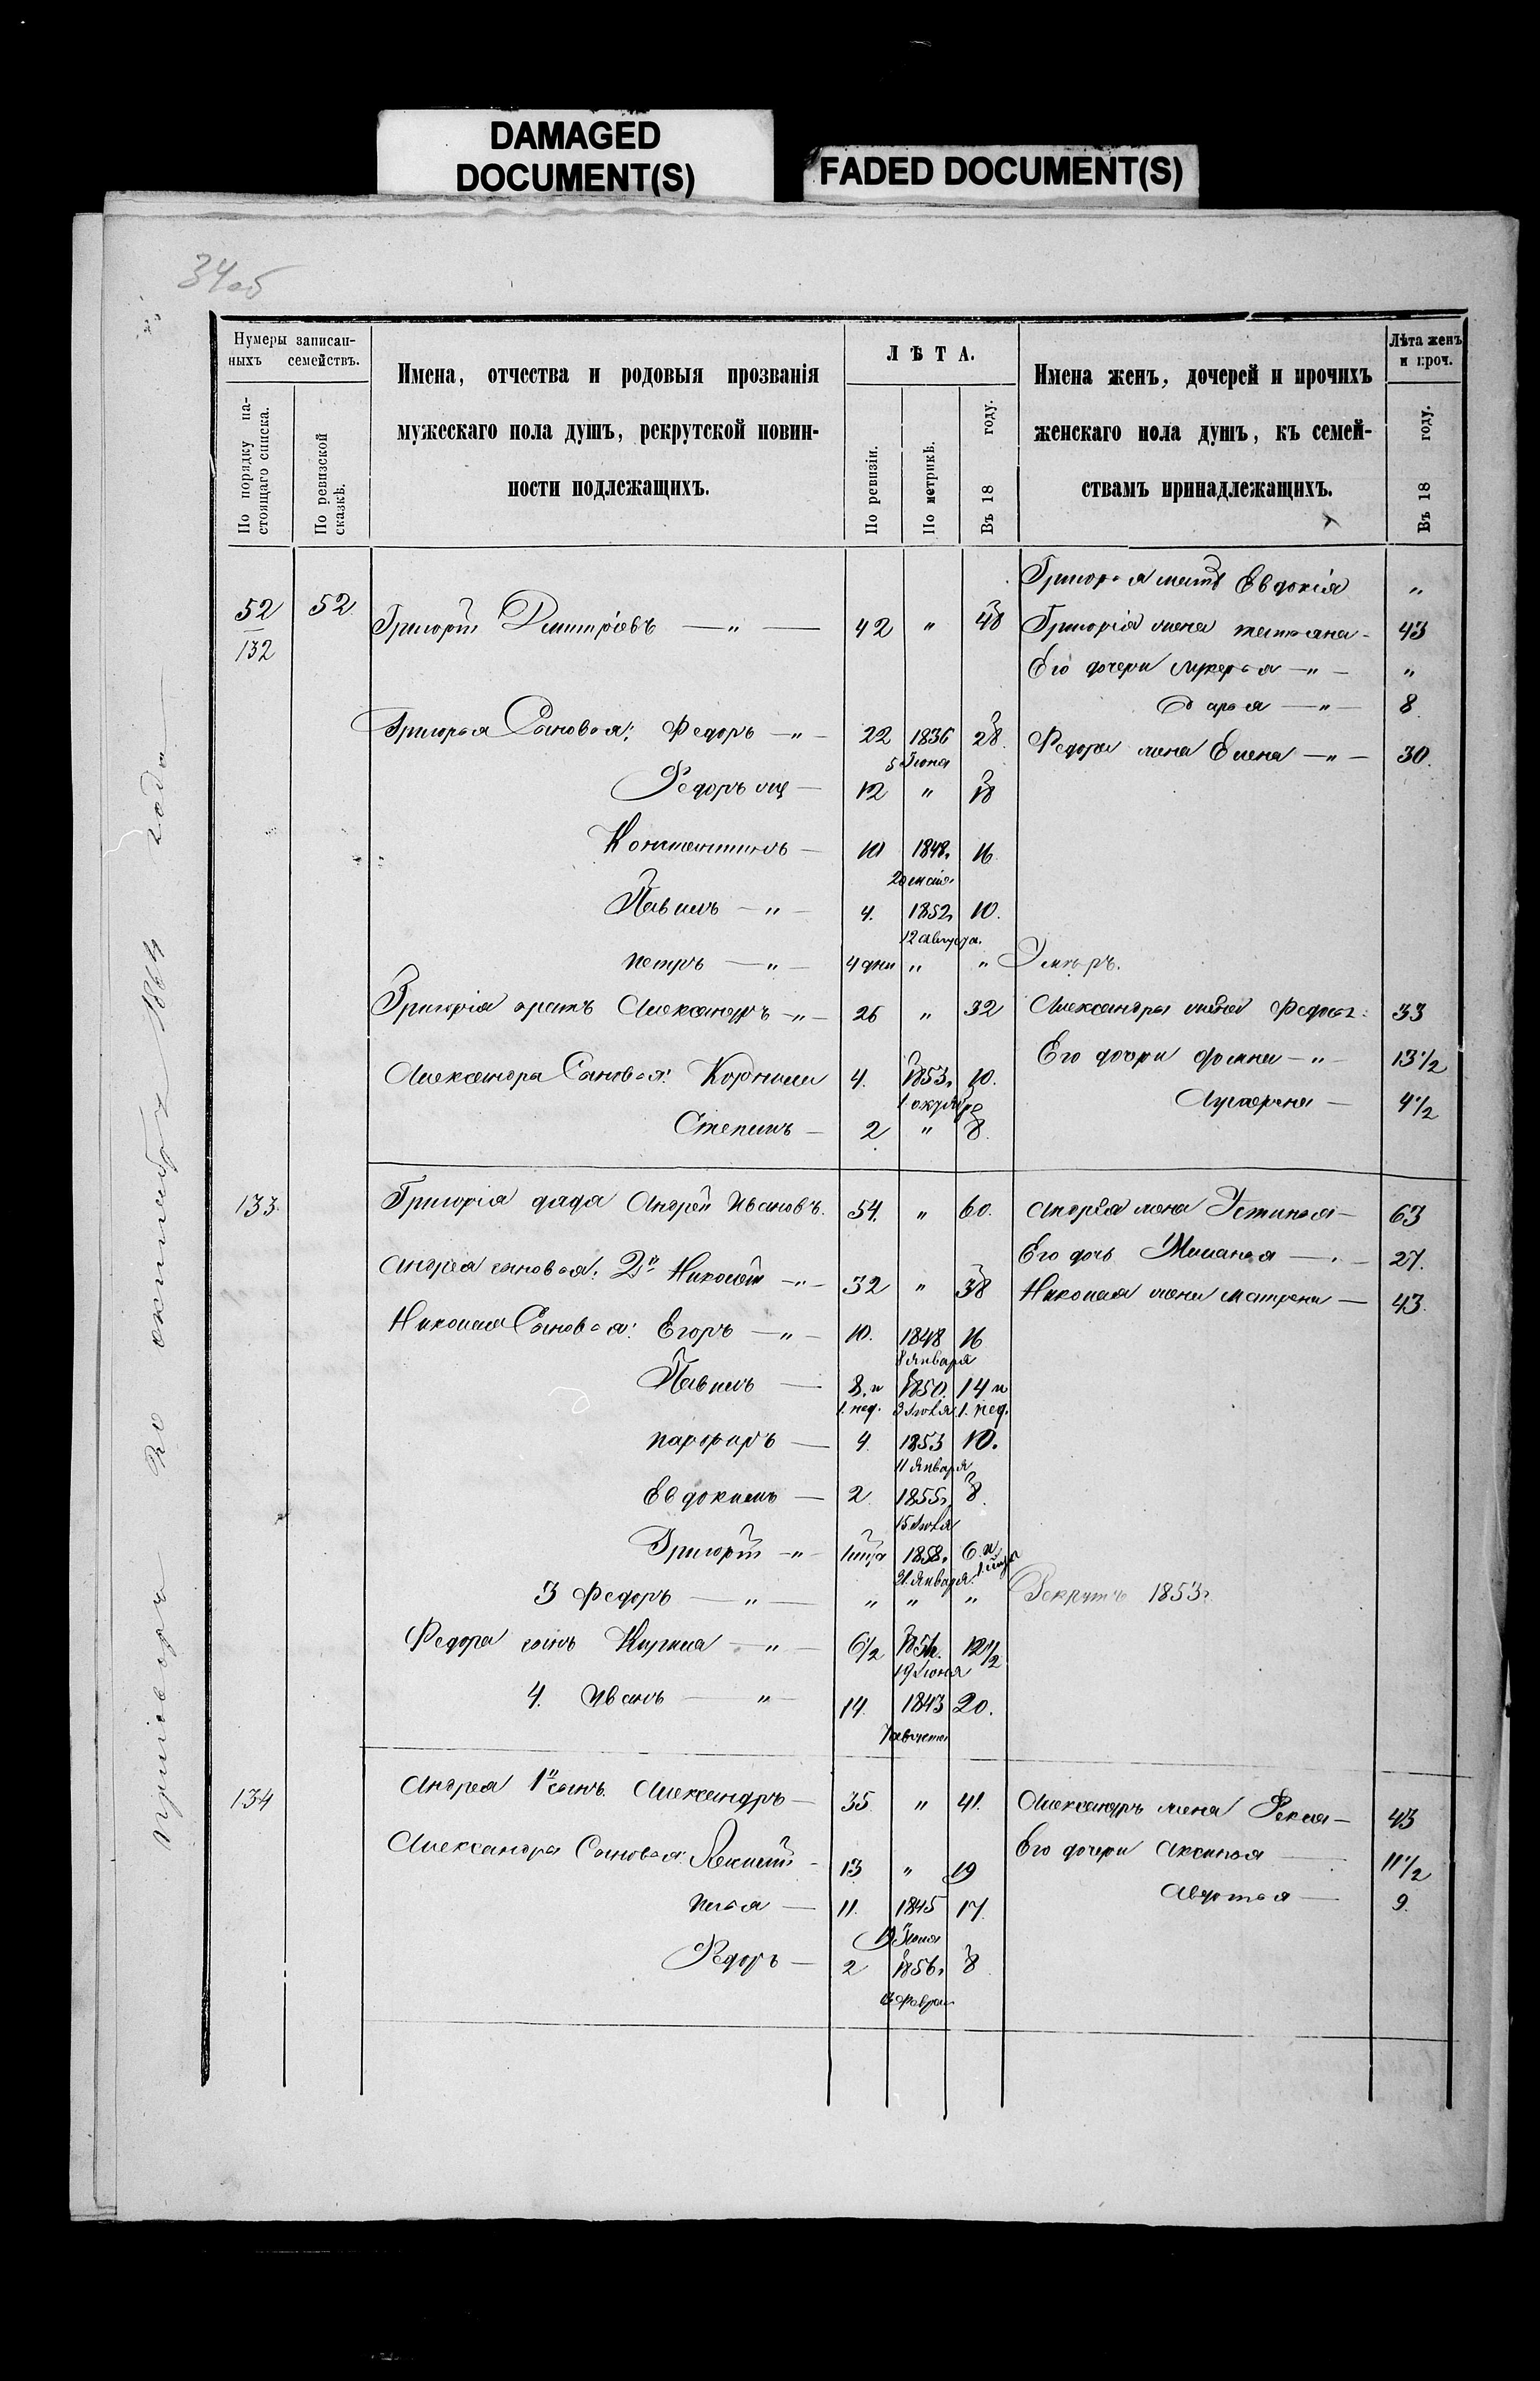 DAMAGED
DOCUMENT(S)
FADED DOCUMENT(S)
34 об
Нумеры записан-
ныхъ семействъ.
По порядку на-
стоящаго списка.
По ревизской
сказкѣ.
Имена, отчества и родовыя прозванія
мужескаго пола душъ, рекрутской повин-
ности подлежащихъ.
ЛѢТА.
По ревизіи.
По метрикѣ.
Въ 18 году.
Имена женъ, дочерей и прочихъ
женскаго пола душъ, къ семей-
ствамъ принадлежащихъ.
Лѣта женъ
и проч.
Въ 18 году.
Григорья мать Евдокія "
52/132 52. Григорій Дмитріевъ — " — 42 " 48 Григорія жена Татьяна - 43
Его дочери Лукерья — " — "
Дарья — " — 8
Григорья Сыновья: Федоръ — " — 22 1836 5 Іюня 28 Федора жена Елена — " — 30.
Федоръ — 12 " 18
Константинъ — 10 1848. 20 мая 16
Павелъ — " — 4. 1852. 12 августа. 10.
Петръ — " — 4 дни " " Умеръ.
Григорія братъ Александръ — " — 26 " 32 Александра жена 33
Его дочери — " — 13 1/2
Александра Сыновья: Корнилъ 4. 1853. 1 октября 10.
4 1/2
Степанъ — 2 " 8.
133. Григорія дядя Андрей Ивановъ. 54. " 60. Андрея жена Устинья — 63
Его дочь Меланья — 27.
Андрея сыновья: 2й Николай — " — 32 " 38 Николая жена Матрена — 43.
Николая Сыновья: Егоръ — " — 10. 1848 8 Января 16
Павелъ — 8. и 1. нед. 1850. 3 Іюля 14 и 1. нед.
Парфиръ — 4. 1853 11 Января 10.
Евдокимъ — 2. 1855. 15 Іюля 8.
Григорій — " — 1 м-ца 1858. 21. Января. 6. и
3 Федоръ — " — " " " Рекрутъ 1853г.
Федора сынъ Кирила — " — 6 1/2 19 Іюня 12 1/2
4. Иванъ — " — 14. 1843 20.
134 Андрея 1й сынъ. Александръ — 35. " 41. Александръ жена Фекла — 43
Александра Сыновья: Алексѣй - 13 " 19 Его дочери Аксинья — 11 1/2
Илья — 11. 1845 19 Іюня 17. Авдотья — 9.
Федоръ — 2 1856. 8
По октябрь 1864 года —